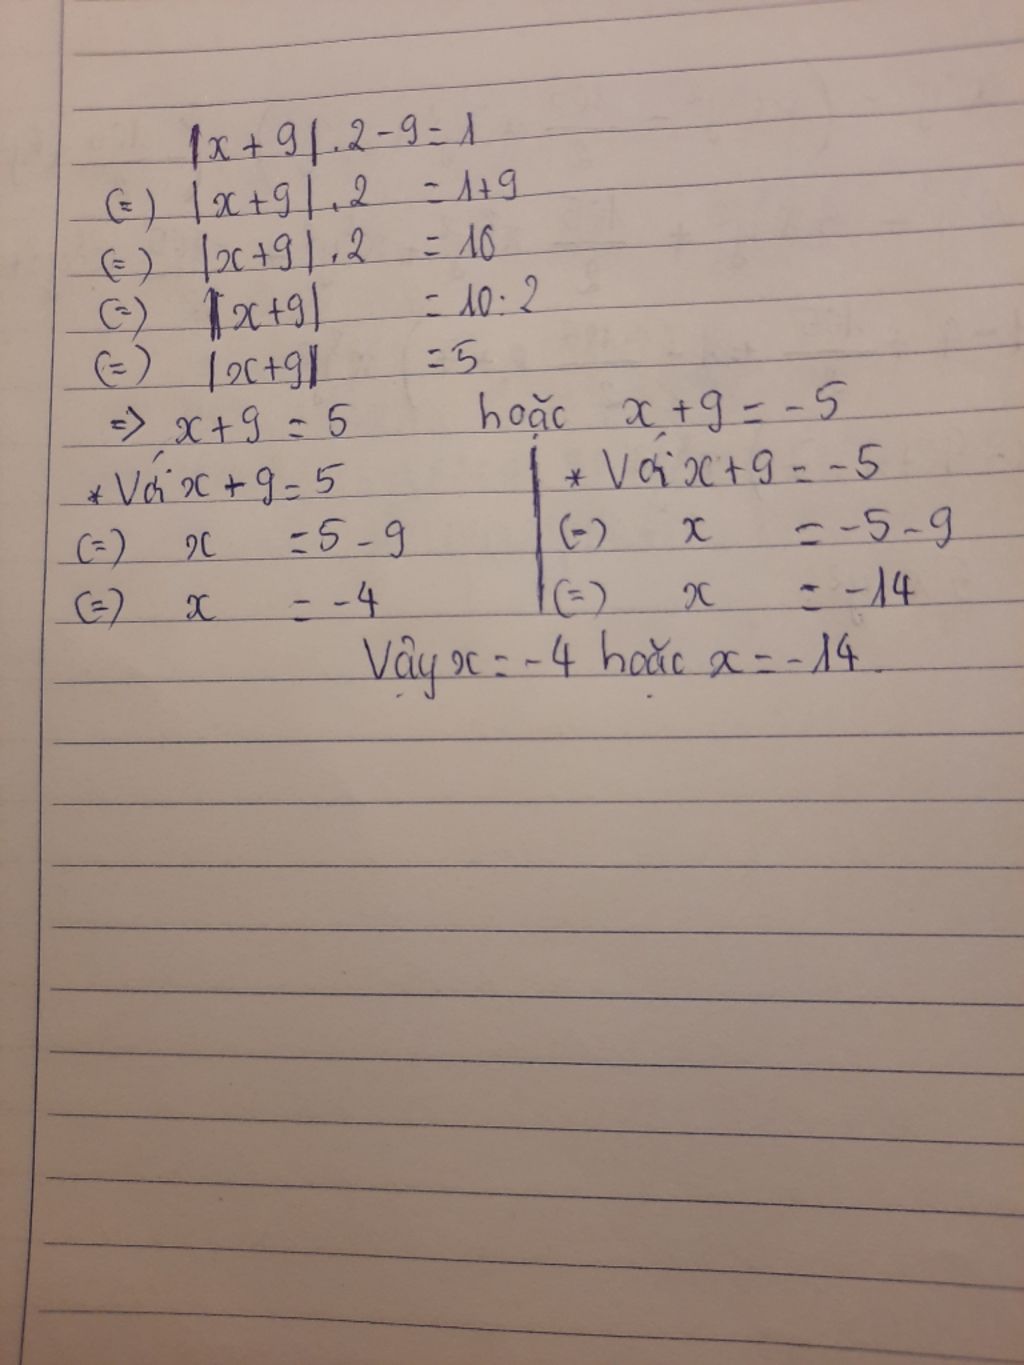 |x+9|.2-9=1
(=) |x+9|.2 = 1+9
(=) |x+9|.2 = 10
(=) |x+9| = 10:2
(=) |x+9| =5
=> x+9 = 5 hoặc x+9=-5
* Với x+9=5 * Với x+9=-5
(=) x =5-9 (=) x =-5-9
(=) x =-4 (=) x =-14
Vậy x=-4 hoặc x=-14.